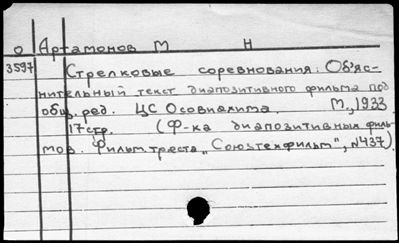 О Артамонов М Н
3597 Стрелковые соревнования: Объяс-
нительный текст диапозитивного фильма под
общ. ред. ЦС Осовиахима М., 1933
17 стр. (Ф-ка диапозитивных филь-
мов. Фильм. треста „Союзтехфильм", №437).